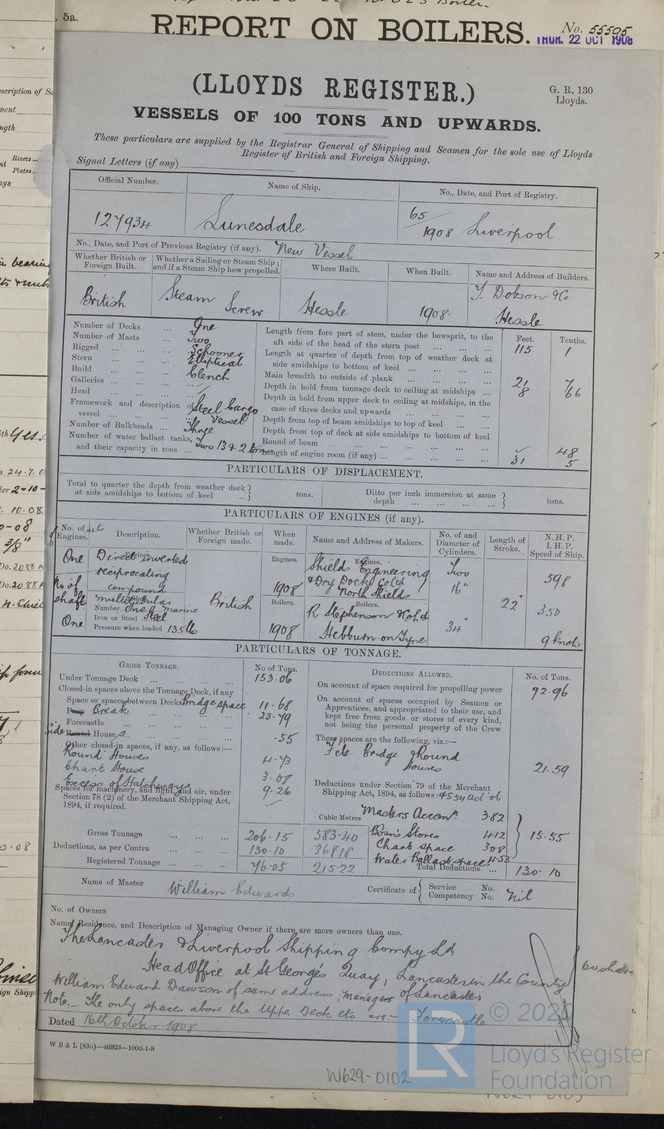 5a.
REPORT ON BOILERS.
No. 55595
THUR. 22 OCT 1908
(LLOYDS REGISTER.)
G. R. 130
Lloyds.
VESSELS OF 100 TONS AND UPWARDS.
These particulars are supplied by the Registrar General of Shipping and Seamen for the sole use of Lloyds
Register of British and Foreign Shipping.
Signal Letters (if any)
Official Number. Name of Ship. No., Date, and Port of Registry.
127934 Lunesdale 65/1908 Liverpool
No., Date, and Port of Previous Registry (if any). New Vessel
Whether British or Foreign Built. Whether a Sailing or Steam Ship; and if a Steam Ship how propelled. Where Built. When Built. Name and Address of Builders.
British Steam Screw Hessle 1908. T. Dobson & Co Hessle
Number of Decks ... One
Number of Masts ... Two
Rigged ... Schooner
Stern ... Elliptical
Build ... Clench
Galleries ...
Head ...
Framework and description of vessel ... Steel Cargo Vessel
Number of Bulkheads ... Three
Number of water ballast tanks, and their capacity in tons ... Two 139.2 tons
Feet. Tenths.
Length from fore part of stem, under the bowsprit, to the aft side of the head of the stern post ... 115 1
Length at quarter of depth from top of weather deck at side amidships to bottom of keel ...
Main breadth to outside of plank ... 21 7
Depth in hold from tonnage deck to ceiling at midships ... 8 66
Depth in hold from upper deck to ceiling at midships, in the case of three decks and upwards ...
Depth from top of beam amidships to top of keel ...
Depth from top of deck at side amidships to bottom of keel
Round of beam ... 48
Length of engine room (if any) ... 31 5
PARTICULARS OF DISPLACEMENT.
Total to quarter the depth from weather deck at side amidships to bottom of keel ... tons. Ditto per inch immersion at same depth ... tons.
PARTICULARS OF ENGINES (if any).
No. of Engines. Description. Whether British or Foreign made. When made. Name and Address of Makers. No. of and Diameter of Cylinders. Length of Stroke. N.H.P. I.H.P. Speed of Ship.
One Direct inverted reciprocating compound
No of shafts One
multitubular
Number. One marine
Iron or Steel Steel
Pressure when loaded 135 lb
British
Engines. 1908
Boilers. 1908
Engines.
Shields Engineering & Dry Dock Co Ld North Shields
Boilers.
R Stephenson & Co Ld Hebburn-on-Tyne
Two 16" 34"
22"
598
350
9 knots
PARTICULARS OF TONNAGE.
GROSS TONNAGE. No of Tons.
Under Tonnage Deck ... 153.06
Closed-in spaces above the Tonnage Deck, if any
Space or spaces between Decks Bridge space 11.68
Poop Break 23.79
Forecastle ...
Side Round Houses .55
Other closed-in spaces, if any, as follows:—
Round Houses 4.73
Chart House 3.08
Excess of Hatchways 9.26
Spaces for machinery, and light and air, under Section 78 (2) of the Merchant Shipping Act, 1894, if required.
Gross Tonnage ... 206.15 583.40
Deductions, as per Contra ... 130.10 368.18
Registered Tonnage ... 76.05 215.22
Cubic Metres
DEDUCTIONS ALLOWED. No. of Tons.
On account of space required for propelling power 92.96
On account of spaces occupied by Seamen or Apprentices, and appropriated to their use, and kept free from goods or stores of every kind, not being the personal property of the Crew
These spaces are the following, viz.:—
Fcle Bridge & Round Houses 21.59
Deductions under Section 79 of the Merchant Shipping Act, 1894, as follows:
Masters Accom. 3.82
Bosn's Stores 4.12
Chart space 3.08
Water Ballast space 4.53
15.55
Total Deductions ... 130.10
Name of Master William Edwards Certificate of { Service No. Competency No. Nil
No. of Owners
Name, Residence, and Description of Managing Owner if there are more owners than one.
The Lancaster & Liverpool Shipping Compy Ld
Head Office at St Georges Quay, Lancaster in the County of Lancaster
William Edward Dawson of same address, manager
Note - The only spaces above the Upper Deck etc are - Forecastle
Dated 16th October 1908
W B & L (83o)—46923—1000-1-8
W629-0102
LR © 202
Lloyd's Register
Foundation